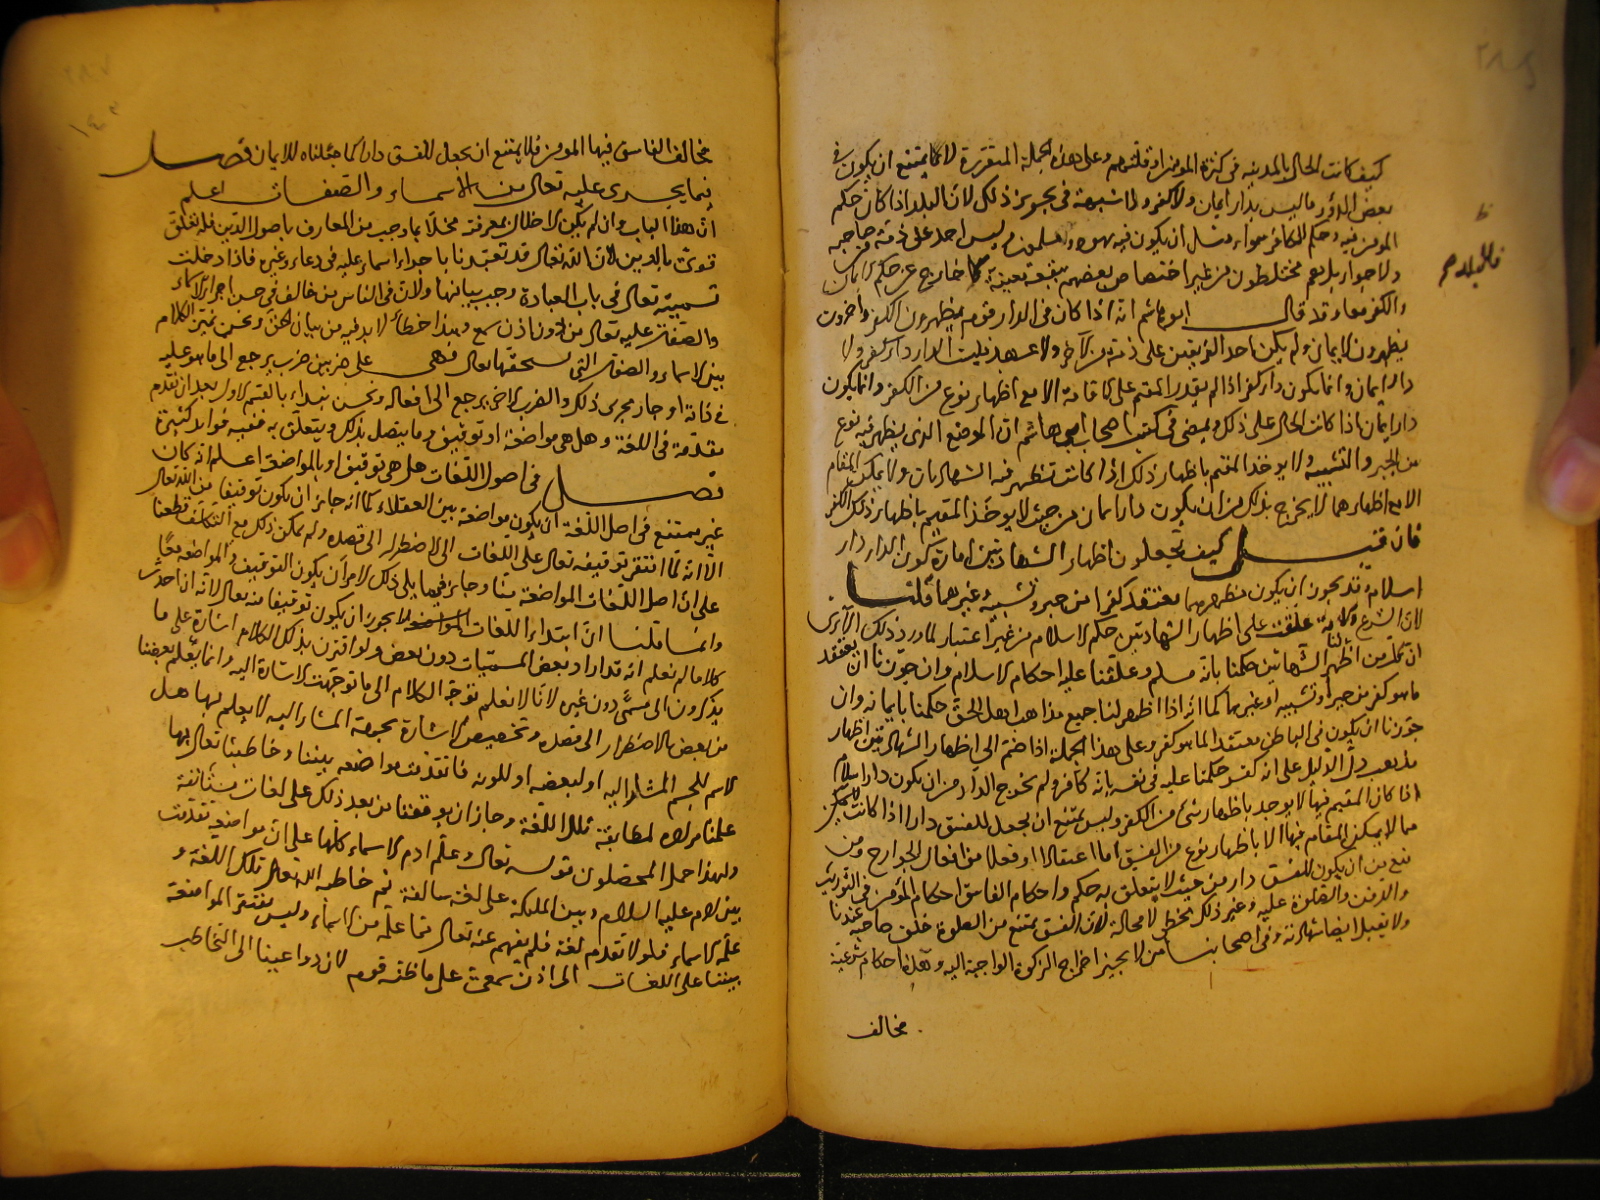 كيف كانت الحال بالمدينة في كثرة المؤمنين او قلتهم وعلى هذه الجملة المتقررة لا يمتنع ان يكون في
بعض الدور ما ليس بدار ايمان ولا كفر ولا شبهة في تجويز ذلك لان البلد اذا كان حكم
المؤمن فيه وحكم الكافر سواء مثل ان يكون فيه يهود ومسلمون وليس احد على ذمة من صاحبه
ولا جوار بل هم مختلطون من غير اختصاص بعضهم ببقعة معينة خارج عن حكم الايمان
والكفر معا وقد قال ابو هاشم انه اذا كان في الدار قوم يظهرون الكفر واخرون
يظهرون الايمان ولم يكن احد الفريقين على ذمة من الاخر ولا عهد فليست الدار دار كفر ولا
دار ايمان وانما يكون دار كفر اذا لم يقدر المقيم على اقامته الا مع اظهار نوع من الكفر وانما يكون
دار ايمان اذا كانت الحال على ذلك ومضى في كتب اصحاب ابي هاشم ان الموضع الذي يظهر فيه نوع
من الجبر والتشبيه ولا يوخذ المقيم باظهار ذلك اذا كانت تظهر فيه الشهادتان ولا يمكن المقام
الا مع اظهارهما لا يخرج بذلك من ان يكون دار ايمان من حيث لا يوخذ المقيم باظهار ذلك الكفر
فان قيل كيف تجعلون اظهار الشهادتين امارة كون الدار دار
اسلام وقد يجوز ان يكون مظهرهما معتقد كفرا من جبر وتشبيه وغيرهما قلنا
لان الشرع علقت على اظهار الشهادتين حكم الاسلام من غير اعتبار لما ورد ذلك الا ترى
ان كل من اظهر لنا الشهادتين حكمنا بانه مسلم وعلقنا عليه احكام الاسلام وان جوزنا ان يعتقد
ما هو كفر من جبر او تشبيه او غيرهما كما انه اذا اظهر لنا جميع مذاهب اهل الحق حكمنا بايمانه وان
جوزنا ان يكون في الباطن معتقدا لما هو كفر وعلى هذا الجملة اذا ضم الى اظهار الشهادتين اظهار
مذهب دل الدليل على انه كفر حكمنا عليه في نفسه بانه كافر ولم تخرج الدار من ان يكون دار اسلام
اذا كان المقيم فيها لا يوخذ باظهار شيء من الكفر وليس يمتنع ان يجعل للفسق دارا اذا كانت
مما لا يمكن المقام فيها الا باظهار نوع من الفسق اما اعتقادا او فعلا من افعال الجوارح ومن
منع من ان يكون للفسق دار من حيث لا يتعلق به حكم واحكام الفاسق احكام المؤمن في التوريث
والدفن والصلوة عليه وغير ذلك مخطئ لا محالة لان الفسق يمتنع من الصلوة خلف صاحبه عندنا
ولا يقبل ايضا شهادته وفي اصحابنا من لا يجيز اخراج الزكوة الواجبة اليه وهذه احكام شرعية
مخالف
مخالف الفاسق فيها المؤمن فلا يمتنع ان يجعل للفسق دارا كما جعلناه للايمان فصل
فيما يجري عليه تعالى من الاسماء والصفات اعلم
ان هذا الباب وان لم يكن الاخلال بمعرفته مخلا بما وجب من المعارف باصول الدين فله تعلق
قوي بالدين لان الله تعالى قد تعبدنا باجراء اسماء عليه في دعاء وغيره فاذا دخلت
تسميته تعالى في باب العبادة وجب بيانها ولان في الناس من خالف في حسن اجراء الاسماء
والصفات عليه تعالى من دون اذن سمع وهذا خطأ لا بد فيه من بيان الحق ونحن نميز الكلام
بين الاسماء والصفات التي يستحقها تعالى فهي على ضربين ضرب يرجع الى ما هو عليه
في ذاته او جار مجرى ذلك والضرب الاخر يرجع الى افعاله ونحن نبداء بالقسم الاول بعد ان نقدم
مقدمة في اللغة وهل هي مواضعة او توقيف وما يتصل بذلك ويتعلق به ففيه فوايد كثيرة
فصل في اصول اللغات هل هي توقيف او بالمواضعة اعلم انه كان
غير ممتنع في اصل اللغة ان يكون مواضعة بين العقلاء كما انه جايز ان يكون توقيفا من الله تعالى
الا انه لما افتقر توقيفه تعالى على اللغات الى الاضطرار الى قصده ولم يمكن ذلك مع التكليف قطعنا
على ان اصل اللغات المواضعة منا وجايز فيما يلي ذلك الامر ان يكون التوقيف والمواضعة معا
وانما قلنا ان ابتداء اللغات لا يجوز ان يكون توقيفا منه تعالى لانه اذا احدث
كلاما لم نعلم انه قد اراد بعض المسميات دون بعض ولو اقترن بذلك الكلام اشارة على ما
يذكرون الى مسمى دون غيره لانا لا نعلم توجه الكلام الى ما توجهت الاشارة اليه وانما يعلم بعضنا
من بعض بالاضطرار الى قصده وتخصيص الاشارة بجهة المشار اليه لا يعلم بها هل
الاسم للجسم المشار اليه او لبعضه او للونه فاذا تقدمت مواضعة بيننا وخاطبنا تعالى بها
علمنا مراده لمطابقة تلك اللغة وجاز ان يوقفنا من بعد ذلك على لغات مستأنفة
ولهذا حمل المحصلون قوله تعالى وعلم ادم الاسماء كلها على ان مواضعة تقدمت
بين ادم عليه السلام وبين الملئكة على لغة سالفة ثم خاطبه الله تعالى بتلك اللغة و
علمه الاسماء فلولا تقدم لغة فلم يفهم عنه تعالى ما علمه من الاسماء وليس يفتقر المواضعة
بيننا على اللغات الى اذن سمعي على ما ظنه قوم لان دواعينا الى التخاطب